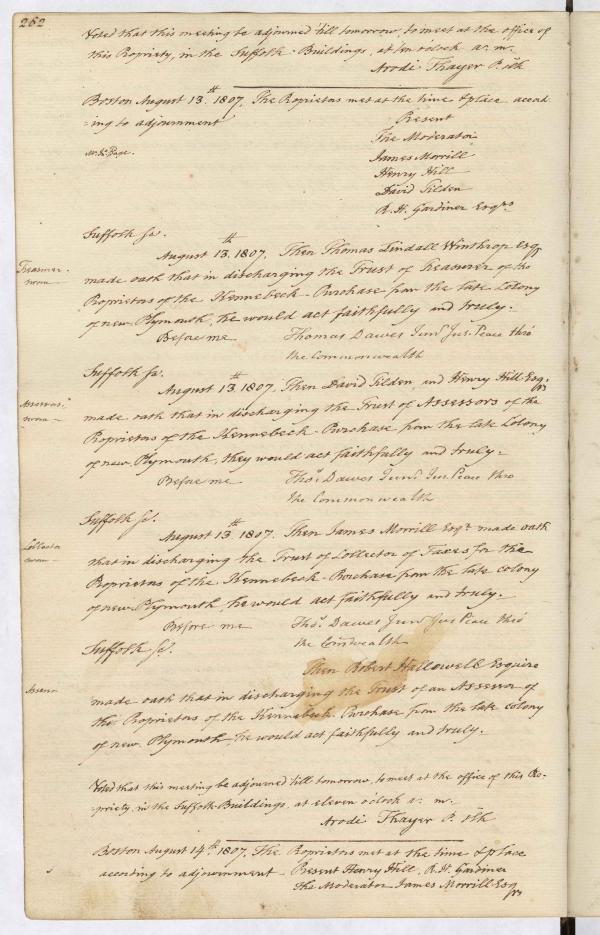 262
Voted that this meeting be adjourned till tomorrow, to meet at the office of
this Propriety, in the Suffolk Buildings, at ten oClock A. M.
Arodi Thayer P. Clk
Boston August 13th 1807. The Proprietors met at the time & place accord-
-ing to adjournment
Present
The Moderator
James Morrill
Henry Hill
David Tilden
R. H. Gardiner Esqrs
Suffolk Ss.
Treasurer
sworn
August 13th 1807. Then Thomas Lindall Winthrop Esqr
made oath that in discharging the Trust of Treasurer of the
Proprietors of the Kennebeck Purchase from the late Colony
of new Plymouth, he would act faithfully and truly.
Before me Thomas Dawes Junr Jus. Peace thro'
the Commonwealth
Suffolk Ss.
Assessors
sworn
August 13th 1807. Then David Tilden and Henry Hill Esqrs
made oath that in discharging the Trust of Assessors of the
Proprietors of the Kennebeck Purchase from the late Colony
of new Plymouth, they would act faithfully and truly.
Before me Thos. Dawes Junr Jus. Peace thro
the Commonwealth
Suffolk Ss.
Collector
sworn
August 13th 1807. Then James Morrill Esqr made oath
that in discharging the Trust of Collector of Taxes for the
Proprietors of the Kennebeck Purchase from the late colony
of new Plymouth, he would act faithfully and truly.
Before me Thos. Dawes Junr Jus Peace thro'
the Comwealth
Suffolk Ss.
Then Robert Hallowell Esquire
Assessor
made oath that in discharging the Trust of an Assessor of
the Proprietors of the Kennebeck Purchase from the late colony
of new Plymouth, he would act faithfully and truly.
Voted that this meeting be adjourned till tomorrow, to meet at the office of this Pro-
-priety, in the Suffolk Buildings, at eleven oClock A. M.
Arodi Thayer P. Clk
Boston August 14th 1807. The Proprietors met at the time & place
according to adjournment - Present Henry Hill, R. H. Gardiner
The Moderator James Morrill Esqrs